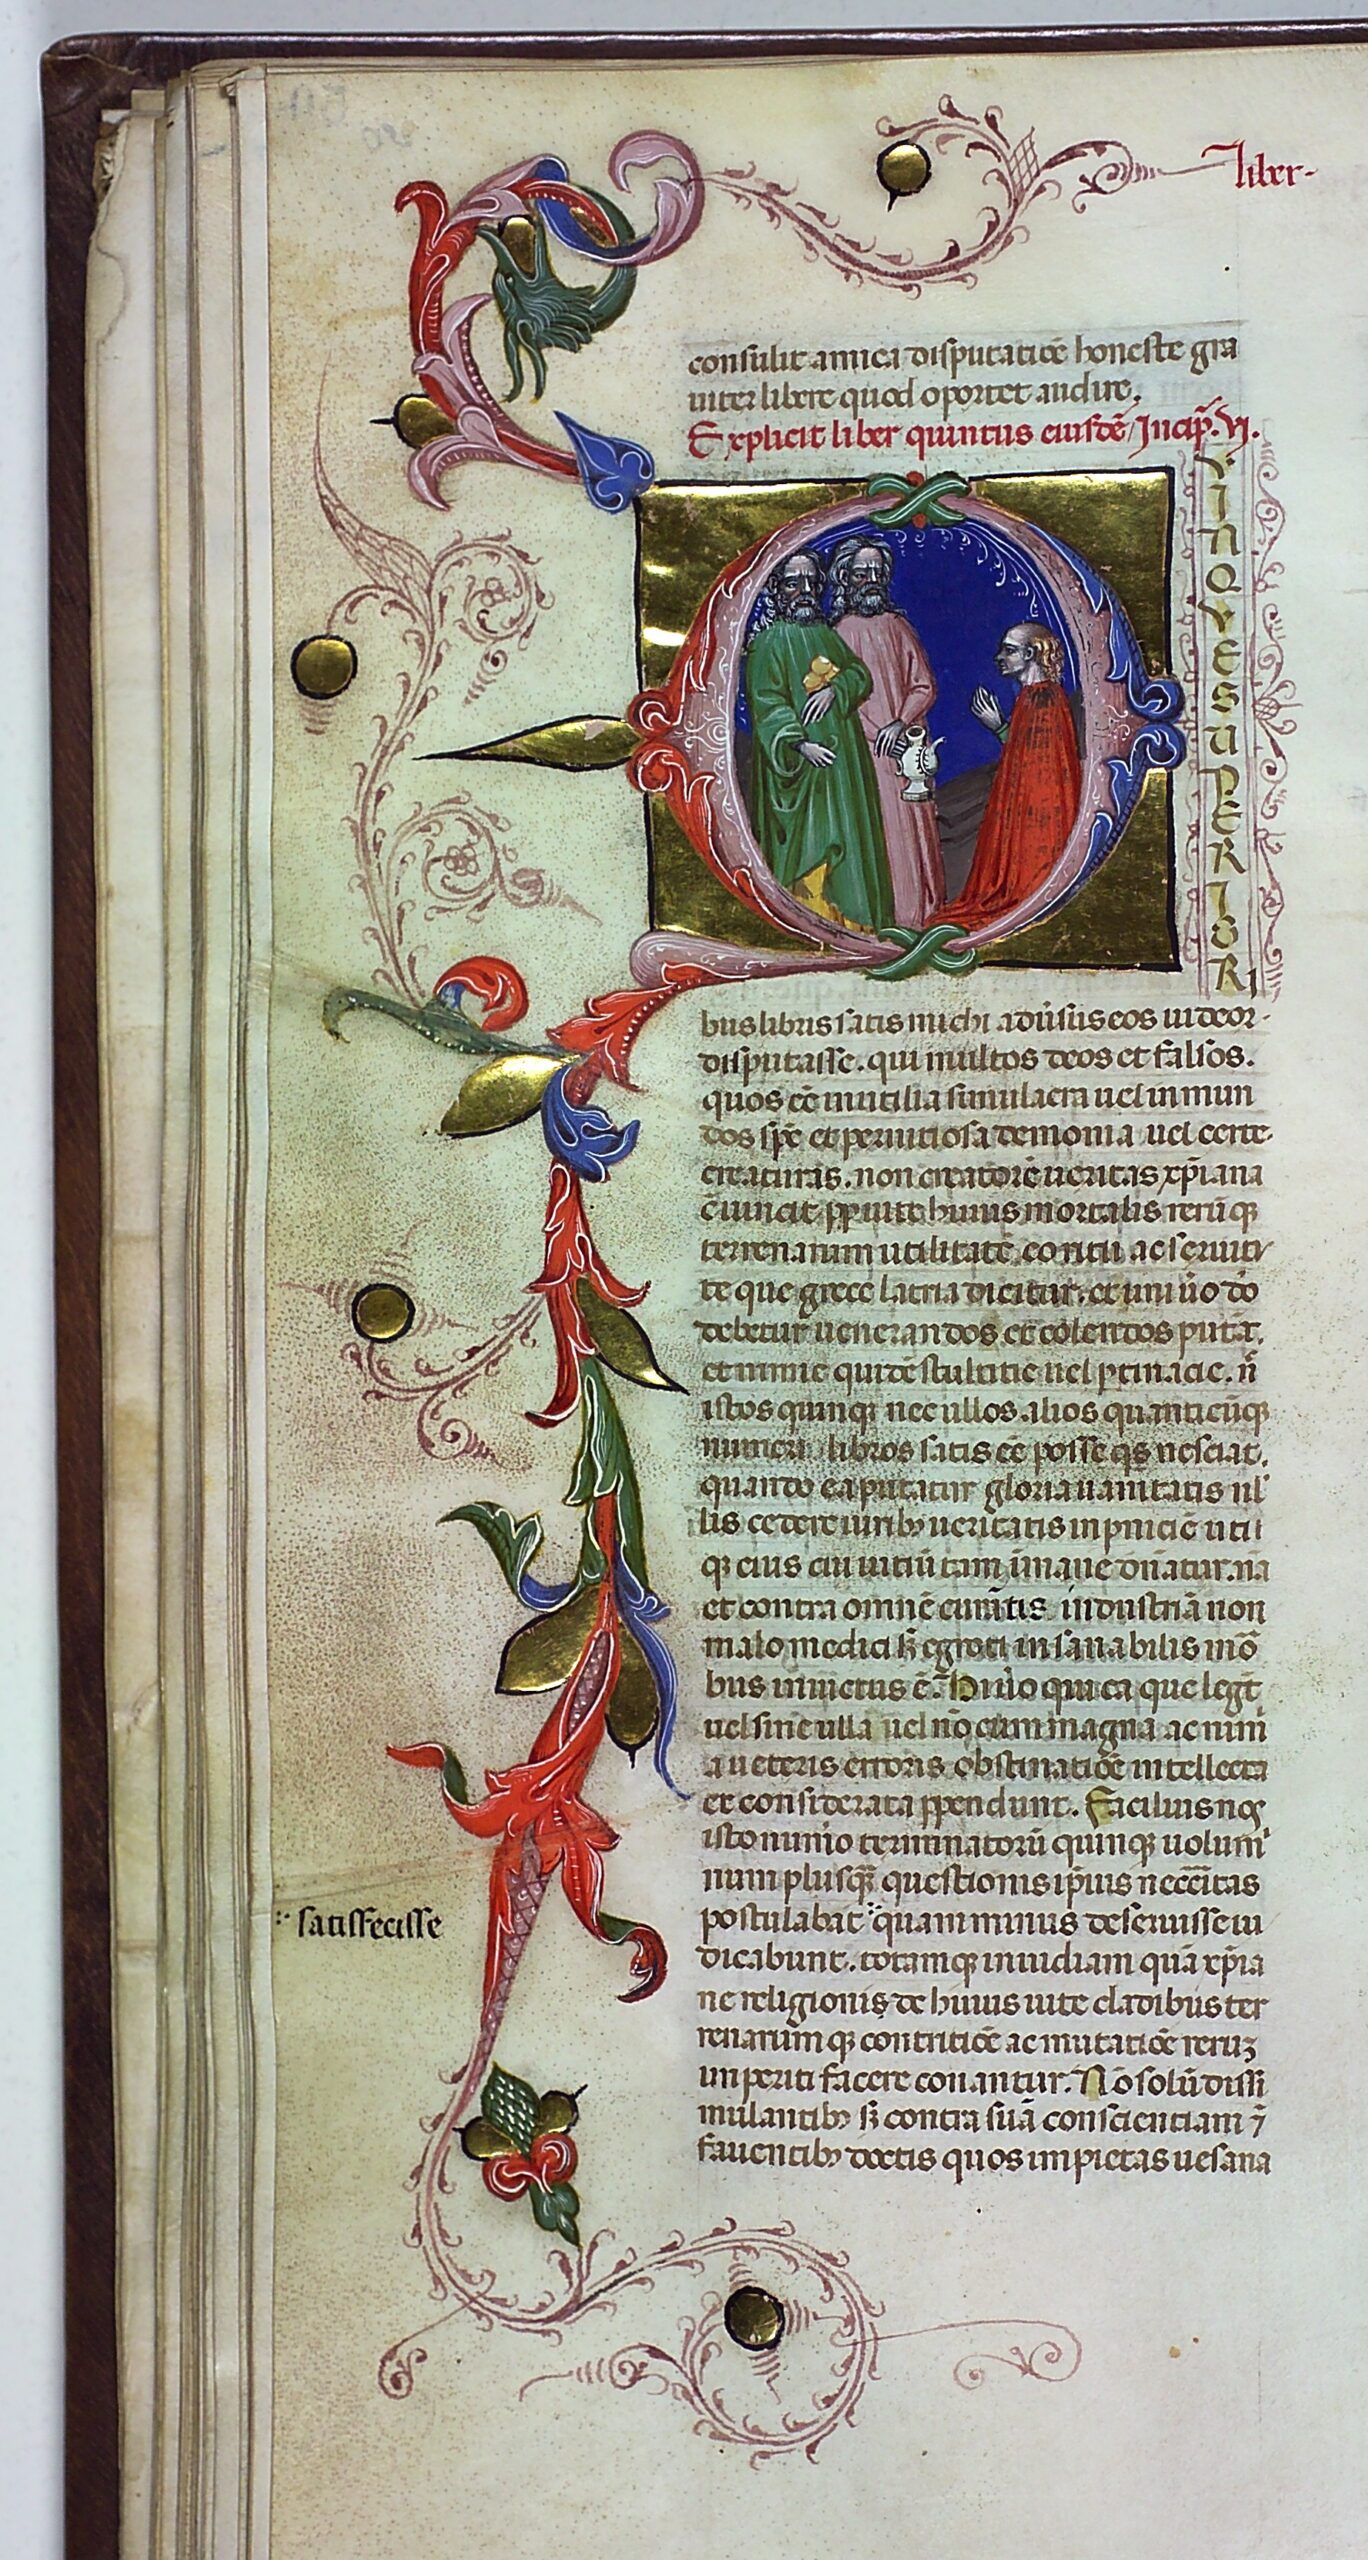 liber
consulit amica disputatiōe honeste gra
uiter libere quod oportet audire.
Explicit liber quintus eiusdē. Incip̄. VI.
QVINQVE SUPERIORI
bus libris satis michi aduīsus eos uideor
disputasse. qui multos deos et falsos.
quos eē inutilia simulacra uel inmun
dos sp̄c et perniciosa demonia uel certe
creaturas. non creatorē ueritas xp̄iana
c̄uincit pp̄ uite huius mortalis rerūq̣
terrenarum utilitatē eo ritu ac seruitu
te que grece latria dicitur. et uni ūo dō
debetur uenerandos et colendos putāt.
et nimie quidē stultitie uel ptinacie. n̄
istos quinq̣ nec ullos alios quanticūq̣
numeri libros satis eē posse q̄s nesciat.
quando ea putatur gloria uanitatis nl̄
lis cedere uirib; ueritatis in pniciē uti
q̣ eius cui uitiū tam īmane dn̄atur. nā
et contra omnē curātis industriā non
malo medici s̄ egroti insanabilis mō
bus inuictus ē. Hii ūo qui ea que legt̄
uel sine ulla uel nō cum magna ac nimi
a ueteris erroris obstinatiōe intellecta
et considerata ppendunt. Facilius nos
isto numo terminatorū quinq̣ uolumi
num plusq̄ questionis ip̄ius necc̄itas
postulabat quam minus deseruisse iu
satisfecisse
dicabunt. totamq̣ inuidiam quā xp̄ia
ne religionis de huius uite cladibus ter
renarumq̣ contritiōe ac mutatiōe rerum
inperiti facere conantur. Nō solū dissi
mulantib; s̄ contra suā conscientiam ⁊
fauentib; doctis quos impietas uesana